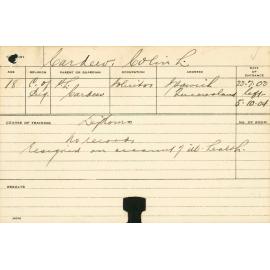 Cardew, Colin L.
AGE RELIGION PARENT OR GUARDIAN OCCUPATION ADDRESS DATE OF ENTRANCE
18 C. of Eng. Cardew Solicitor Ipswich Queensland 22-7-02
left
5-10-04
COURSE OF TRAINING Diploma NO. OF ROOM
No records
Resigned on account of ill-health.
RESULTS